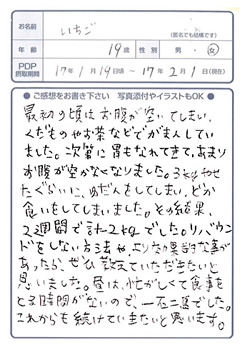 お名前 いちご
(匿名でも結構です)
年齢 19歳 性別 男・女
PDP摂取期間 17年1月19日頃〜17年2月1日(現在)
●ご感想をお書き下さい 写真添付やイラストもOK●
最初の頃はお腹が空いてしまい、
くだものやお茶などでがまんしてい
ました。次第に胃もなれてきて、あまり
お腹が空かなくなりました。3kgやせ
たぐらいに、ゆだんをしてしまい、どか
食いをしてしまいました。その結果、
2週間で計-2kgでした。リバウン
ドをしない方法や、より効果的な事が
あったら、ぜひ教えていただきたいと
思いました。昼は、忙がしくて食事を
とる時間がないので、一石二鳥でした。
これからも続けていきたいと思います。